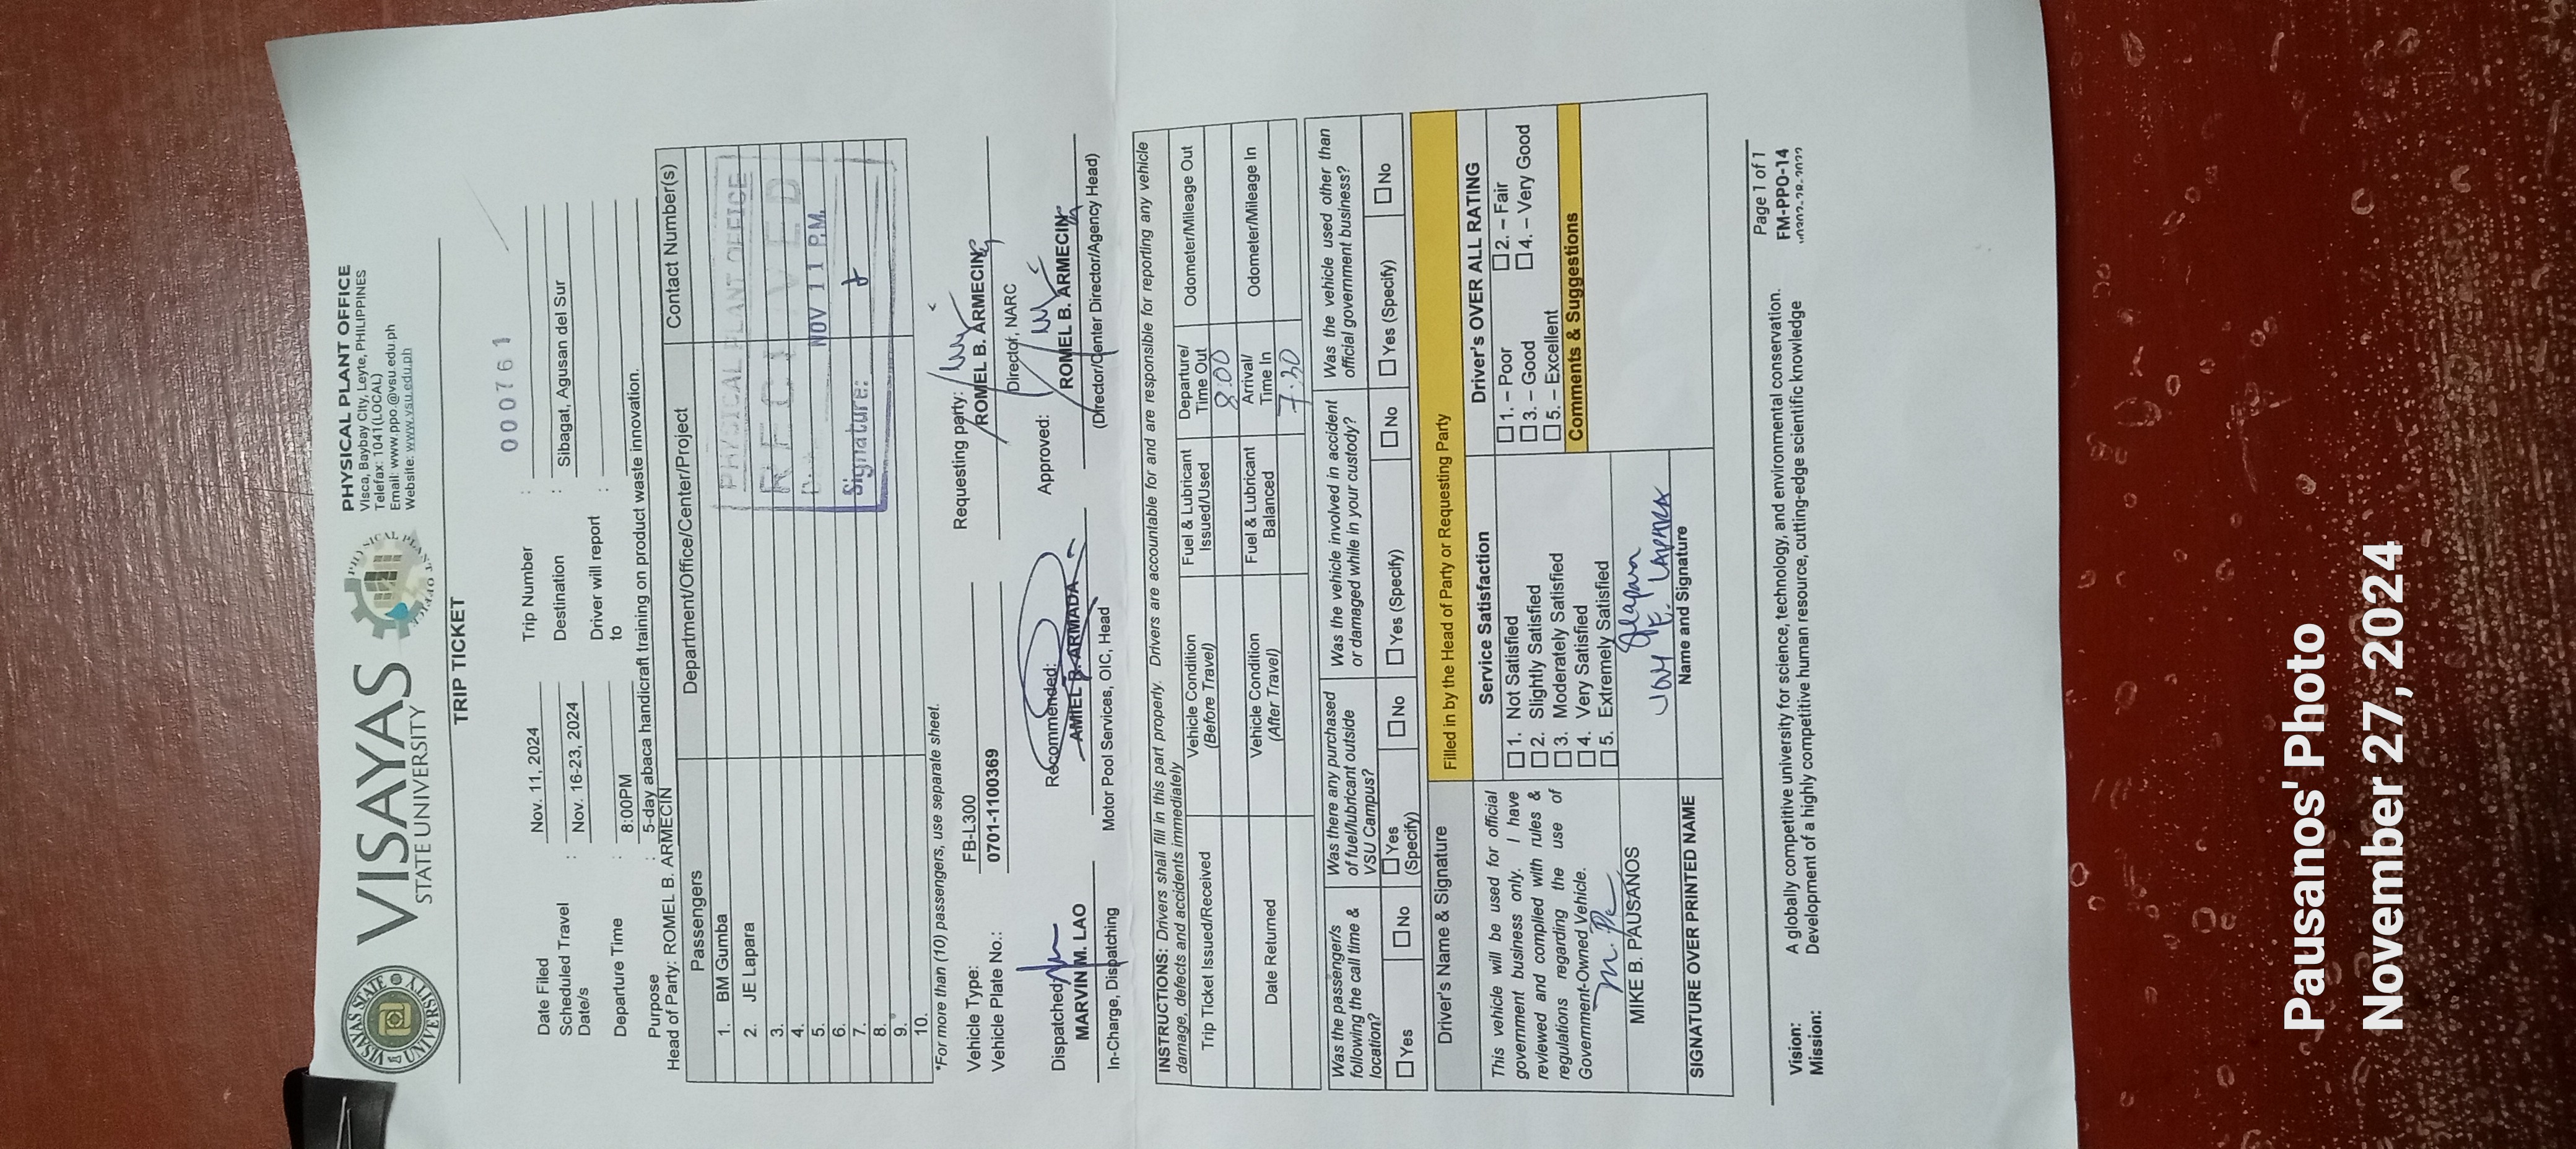 VISAYAS
STATE UNIVERSITY
PHYSICAL PLANT OFFICE
Visca, Baybay City, Leyte, PHILIPPINES
Telefax: 1041(LOCAL)
Email: www.ppo.@vsu.edu.ph
Website: www.vsu.edu.ph
TRIP TICKET
000761
Date Filed Nov. 11, 2024 Trip Number :
Scheduled Travel Date/s : Nov. 16-23, 2024 Destination : Sibagat, Agusan del Sur
Departure Time : 8:00PM Driver will report to :
Purpose : 5-day abaca handicraft training on product waste innovation.
Head of Party: ROMEL B. ARMECIN
Passengers Department/Office/Center/Project Contact Number(s)
1. BM Gumba
2. JE Lapara
3.
4.
5.
6.
7.
8.
9.
10.
PHYSICAL PLANT OFFICE
NOV 11 P.M.
Signature:
*For more than (10) passengers, use separate sheet.
Vehicle Type: FB-L300
Vehicle Plate No.: 0701-1100369
Requesting party:
ROMEL B. ARMECIN
Director, NARC
Dispatched
MARVIN M. LAO
In-Charge, Dispatching
Recommended:
AMIEL B. ARMADA
Motor Pool Services, OIC, Head
Approved:
ROMEL B. ARMECIN
(Director/Center Director/Agency Head)
INSTRUCTIONS: Drivers shall fill in this part properly. Drivers are accountable for and are responsible for reporting any vehicle
damage, defects and accidents immediately
Trip Ticket Issued/Received Vehicle Condition (Before Travel) Fuel & Lubricant Issued/Used Departure/ Time Out Odometer/Mileage Out
8:00
Date Returned Vehicle Condition (After Travel) Fuel & Lubricant Balanced Arrival/ Time In Odometer/Mileage In
7:30
Was the passenger/s following the call time & location? Was there any purchased of fuel/lubricant outside VSU Campus? Was the vehicle involved in accident or damaged while in your custody? Was the vehicle used other than official government business?
Yes No Yes (Specify) No Yes (Specify) No Yes (Specify) No
Driver's Name & Signature
Filled in by the Head of Party or Requesting Party
This vehicle will be used for official
government business only. I have
reviewed and complied with rules &
regulations regarding the use of
Government-Owned Vehicle.
MIKE B. PAUSANOS
SIGNATURE OVER PRINTED NAME
Service Satisfaction
1. Not Satisfied
2. Slightly Satisfied
3. Moderately Satisfied
4. Very Satisfied
5. Extremely Satisfied
Name and Signature
Driver's OVER ALL RATING
1. – Poor 2. – Fair
3. – Good 4. – Very Good
5. – Excellent
Comments & Suggestions
Page 1 of 1
FM-PPO-14
Vision: A globally competitive university for science, technology, and environmental conservation.
Mission: Development of a highly competitive human resource, cutting-edge scientific knowledge
Pausanos' Photo
November 27, 2024